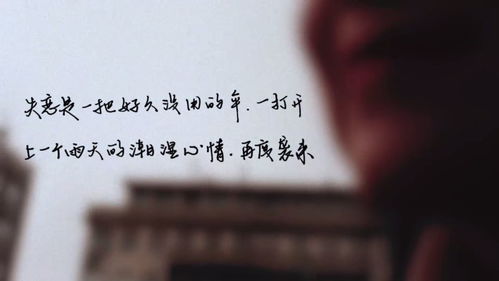 失恋是一把好久没用的伞，一打开
上一个雨天的潮湿心情，再度袭来